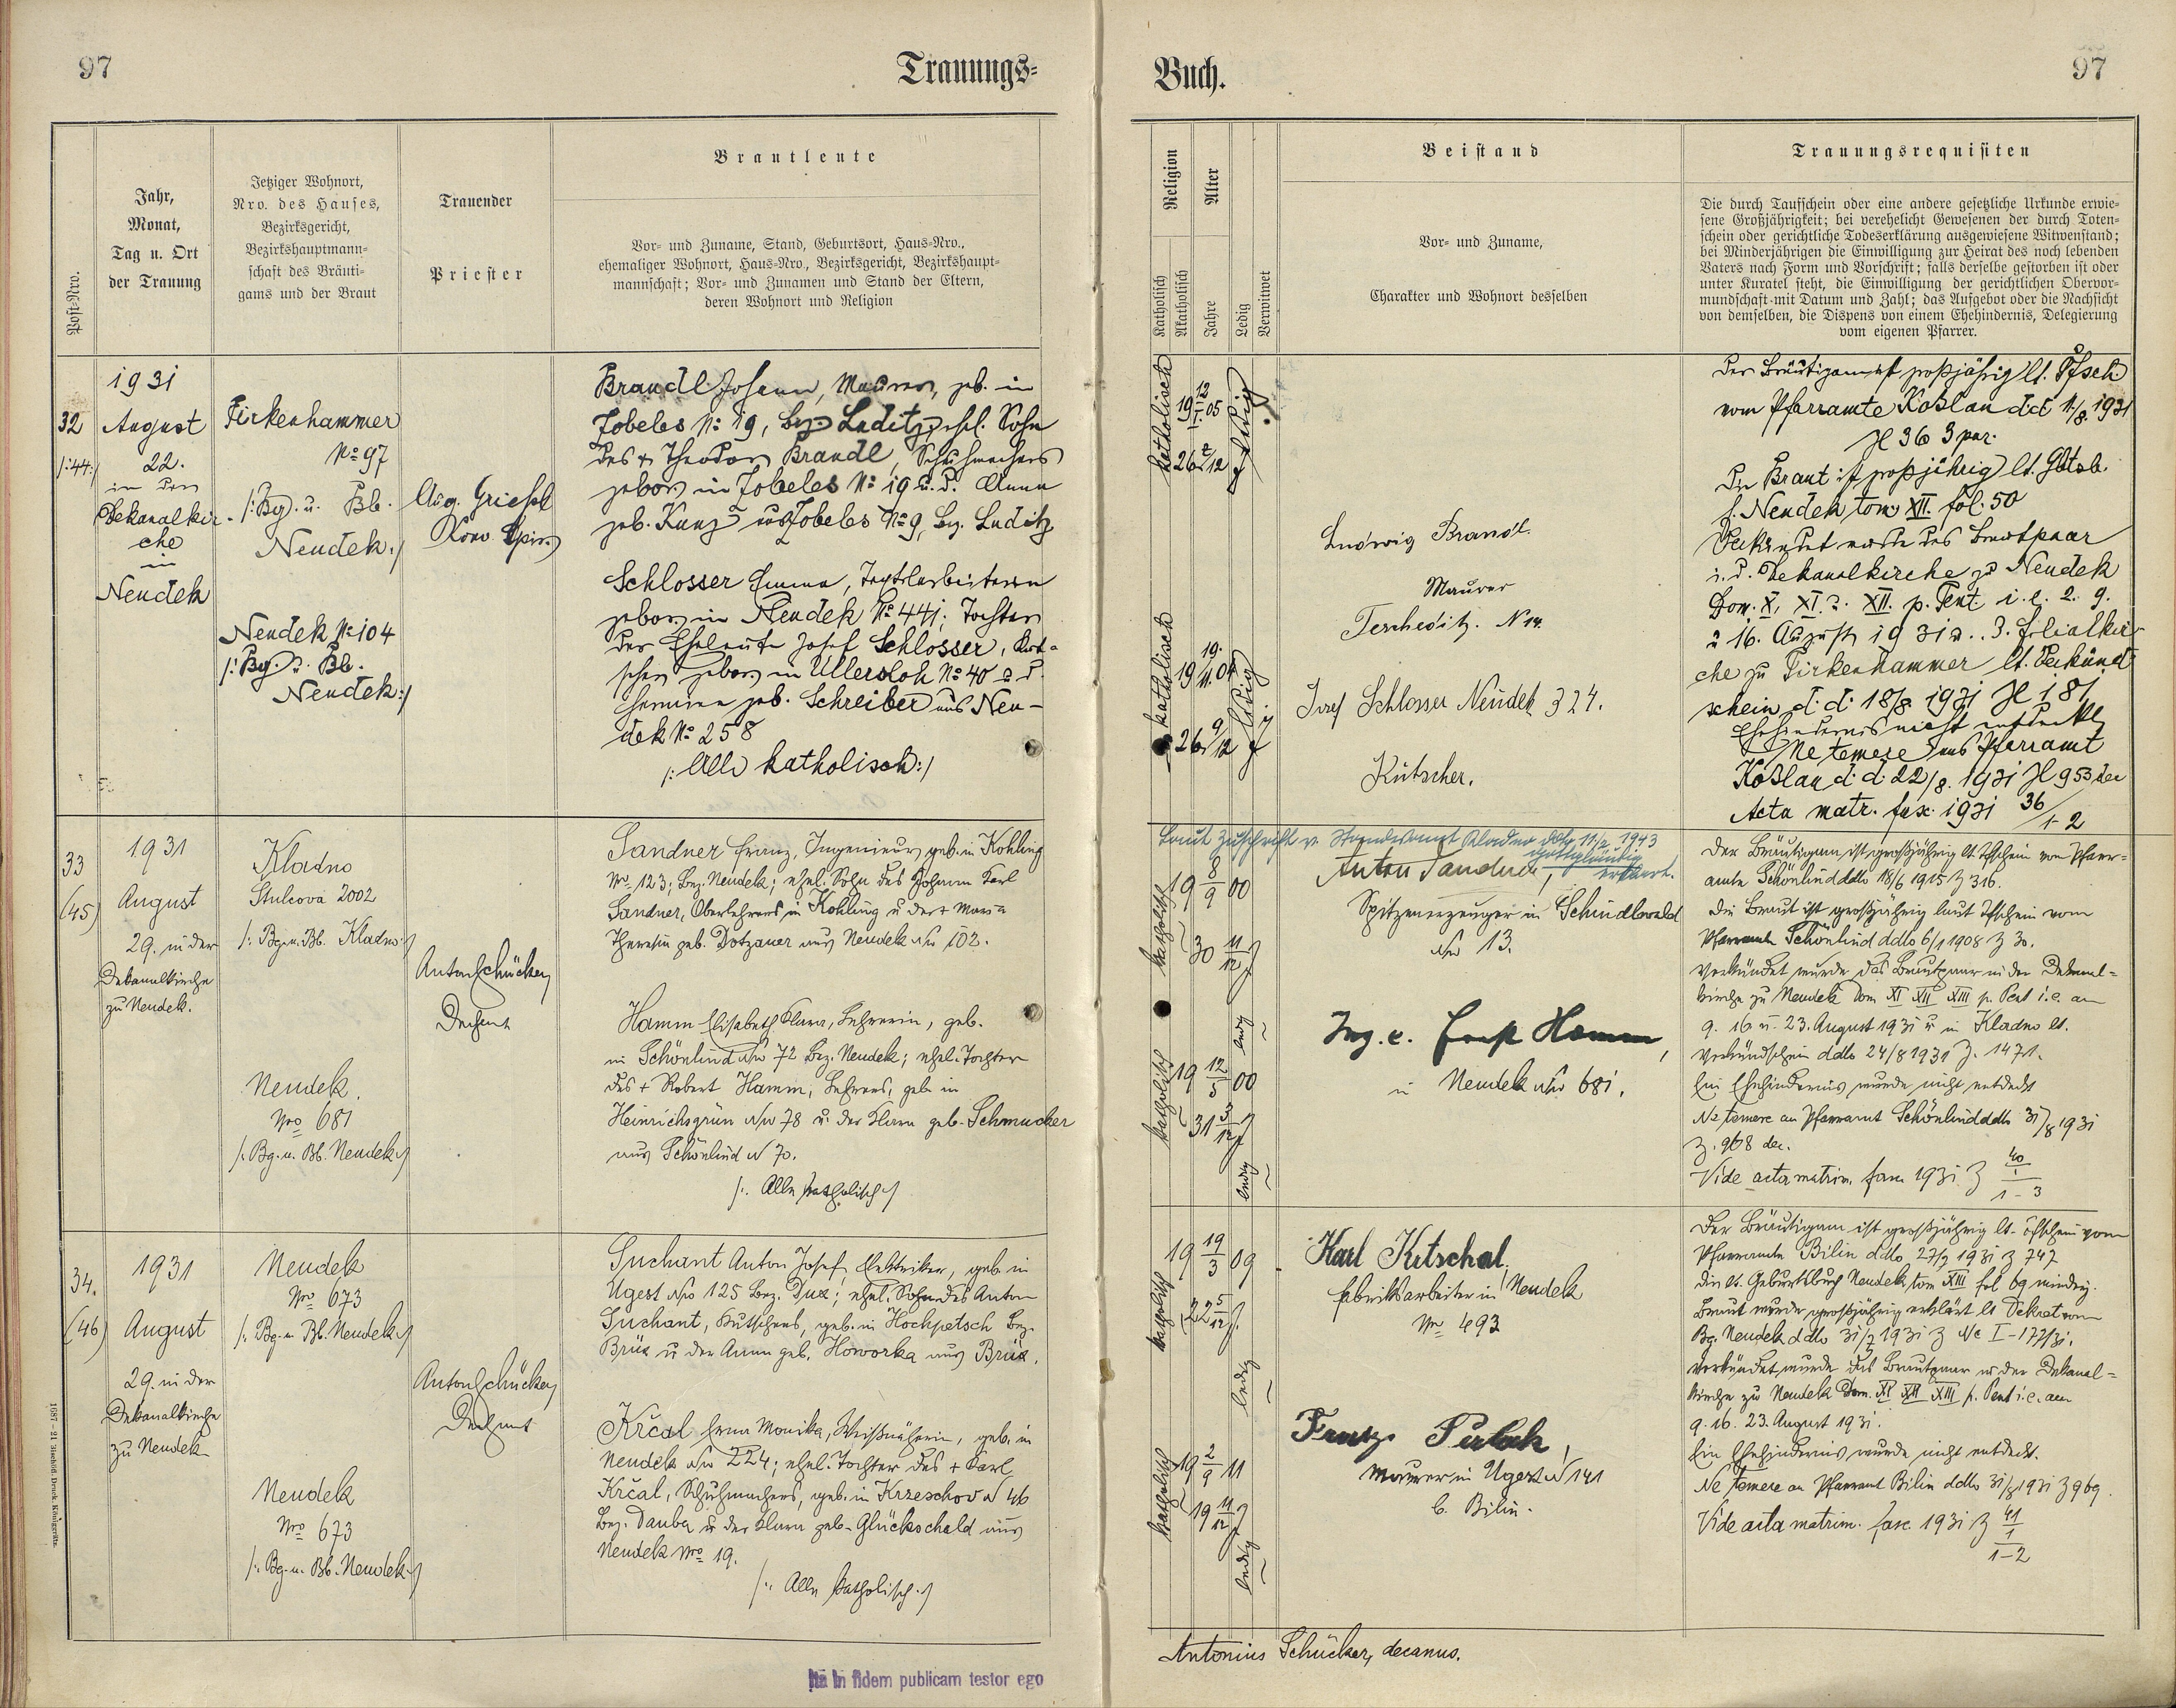 97
Trauungs=
Buch.
97
Post-Nro.
Jahr,
Monat,
Tag u. Ort
der Trauung
Jetziger Wohnort,
Nro. des Hauses,
Bezirksgericht,
Bezirkshauptmann=
schaft des Bräuti=
gams und der Braut
Trauender
Priester
Brautleute
Vor= und Zuname, Stand, Geburtsort, Haus=Nro.,
ehemaliger Wohnort, Haus=Nro., Bezirksgericht, Bezirkshaupt=
mannschaft; Vor= und Zunamen und Stand der Eltern,
deren Wohnort und Religion
Religion
Katholisch
Akatholisch
Alter
Jahre
Ledig
Verwitwet
Beistand
Vor= und Zuname,
Charakter und Wohnort desselben
Trauungsrequisiten
Die durch Taufschein oder eine andere gesetzliche Urkunde erwie=
sene Großjährigkeit; bei verehelicht Gewesenen der durch Toten=
schein oder gerichtliche Todeserklärung ausgewiesene Witwenstand;
bei Minderjährigen die Einwilligung zur Heirat des noch lebenden
Vaters nach Form und Vorschrift; falls derselbe gestorben ist oder
unter Kuratel steht, die Einwilligung der gerichtlichen Obervor=
mundschaft mit Datum und Zahl; das Aufgebot oder die Nachsicht
von demselben, die Dispens von einem Ehehindernis, Delegierung
vom eigenen Pfarrer.
32
/:44:/
1931
August
22.
in der
Dekanalkir-
che
in
Neudek
Firkenhammer
No 97
/: Bg. u. Bb.
Neudek :/
Neudek No 104
/: Bg. u. Bb.
Neudek :/
Aug. Griessl
Brandl Johann, Maurer, geb. in
Zobeles No 19, Bez. Luditz, ehl. Sohn
des + Theodor Brandl, Schuhmachers
gebor. in Zobeles No 19 u. d. Anna
geb. Kunz aus Zobeles No 9, Bez. Luditz
Schlosser Emma, Textilarbeiterin
gebor. in Neudek No 441; Tochter
der Eheleute Josef Schlosser, Kut-
scher gebor. in Ullersloh No 40 u. d.
Hermine geb. Schreiber aus Neu-
dek No 258
/: Alle katholisch :/
katholisch
19 12/I. 05
26 /12
ledig
katholisch
19 19./11. 04
26 9/12
ledig
Ludwig Brandl.
Maurer
Tescheditz. N 14.
Josef Schlosser Neudek 324.
Kutscher.
Der Bräutigam ist großjährig lt. Tfsch.
vom Pfarramte Koslau d.d. 1/8. 1931
Zl 36 3 par.
Die Braut ist großjährig lt. Gbtsb.
f. Neudek tom XII. fol. 50
Verkündet wurde das Brautpaar
i. d. Dekanalkirche zu Neudek
Dom. X., XI. u. XII. p. Pent. i. e. 2. 9.
u 16. August 1931 u. . 3. Filialkir-
che zu Firkenhammer lt. Verkünd-
schein d. d. 18/8 1931 Zl 181
Ehehindernis nicht entdeckt
Ne temere ans Pfarramt
Koslau d. d. 22/8. 1931 Zl 953 dec
Acta matr. fasc. 1931 36/1-2
33
(45)
1931
August
29. in der
Dekanalkirche
zu Neudek.
Kladno
Stulcova 2002
/: Bg. u. Bb. Kladno :/
Neudek.
Nro 681
/: Bg. u. Bb. Neudek :/
Anton Schücker,
Dechant
Sandner Franz, Ingenieur, geb. in Kohling
Nro 123; Bez. Neudek; ehel. Sohn des Johann Karl
Sandner, Oberlehrers in Kohling u der + Maria
Theresia geb. Dotzauer aus Neudek Nro 102.
Hamm Elisabeth Klara, Lehrerin, geb.
in Schönlind Nro 72 Bez. Neudek; ehel. Tochter
des + Robert Hamm, Lehrers, geb. in
Heinrichsgrün Nro 78 u. der Klara geb. Schmucker
aus Schönlind N 70.
/: Alle katholisch :/
katholisch
19 8/9 00
30 11/12
ledig
katholisch
19 12/5 00
31 3/12
ledig
Laut Zuschrift v. Standesamt Kladno ddto 11/2 1943
gottgläubig
erklärt.
Anton Sandner,
Spitzenerzeuger in Schindlwald
Nro 13.
Ing. e. Ernst Hamm,
in Neudek Nro 681.
Der Bräutigam ist großjährig lt. Tfschein vom Pfarr=
amte Schönlind ddto 18/6 1915 Z 316.
Die Braut ist großjährig laut Tfschein vom
Pfarramte Schönlind ddto 6/1 1908 Z 30.
Verkündet wurde das Brautpaar in der Dekanal=
kirche zu Neudek Dom XI XII XIII p. Pent i. e. am
9. 16 u. 23. August 1931 u in Kladno lt.
Verkündschein ddto 24/8 1931 Z. 1471.
Ein Ehehindernis wurde nicht entdeckt
Ne temere an Pfarramt Schönlind ddto 31/8 1931
Z. 968 dec.
Vide acta matrim. fasc 1931 Z 40/1-3
34.
(46)
1931
August
29. in der
Dekanalkirche
zu Neudek
Neudek
Nro 673
/: Bg. u. Bb. Neudek :/
Neudek
Nro 673
/: Bg. u. Bb. Neudek :/
Anton Schücker,
Dechant
Suchant Anton Josef, Elektriker, geb. in
Ugest Nro 125 Bez. Dux; ehel. Sohn des Anton
Suchant, Kutschers, geb. in Hochpetsch Bez.
Brüx u der Anna geb. Howorka aus Brüx.
Krčal Erna Monika, Weißnäherin, geb. in
Neudek Nro 224; ehel. Tochter des + Karl
Krčal, Schuhmachers, geb. in Krzeschov N 46
Bez. Dauba u der Klara geb. Glückschald aus
Neudek Nro 19.
/: Alle katholisch :/
katholisch
19 19/3 09
22 5/12
ledig
katholisch
19 2/9 11
19 11/12
ledig
Karl Kutschal,
Fabriksarbeiter in Neudek
Nro 493
Franz
Maurer in Ugest N 141
b. Bilin.
Der Bräutigam ist großjährig lt. Tfschein vom
Pfarramte Bilin ddto 27/7 1931 Z 747
Die lt. Geburtsbuch Neudek tom XIII fol 69 minderj.
Braut wurde großjährig erklärt lt Dekret vom
Bg. Neudek ddto 31/7 1931 Z Nc I-177/31.
Verkündet wurde das Brautpaar in der Dekanal=
kirche zu Neudek Dom. XI XII XIII p. Pent i. e. am
9. 16. 23. August 1931.
Ein Ehehindernis wurde nicht entdeckt.
Ne temere an Pfarramt Bilin ddto 31/8 1931 Z 969.
Vide acta matrim. fasc. 1931 Z 41/1-2
Antonius Schücker, decanus.
Ita in fidem publicam testor ego